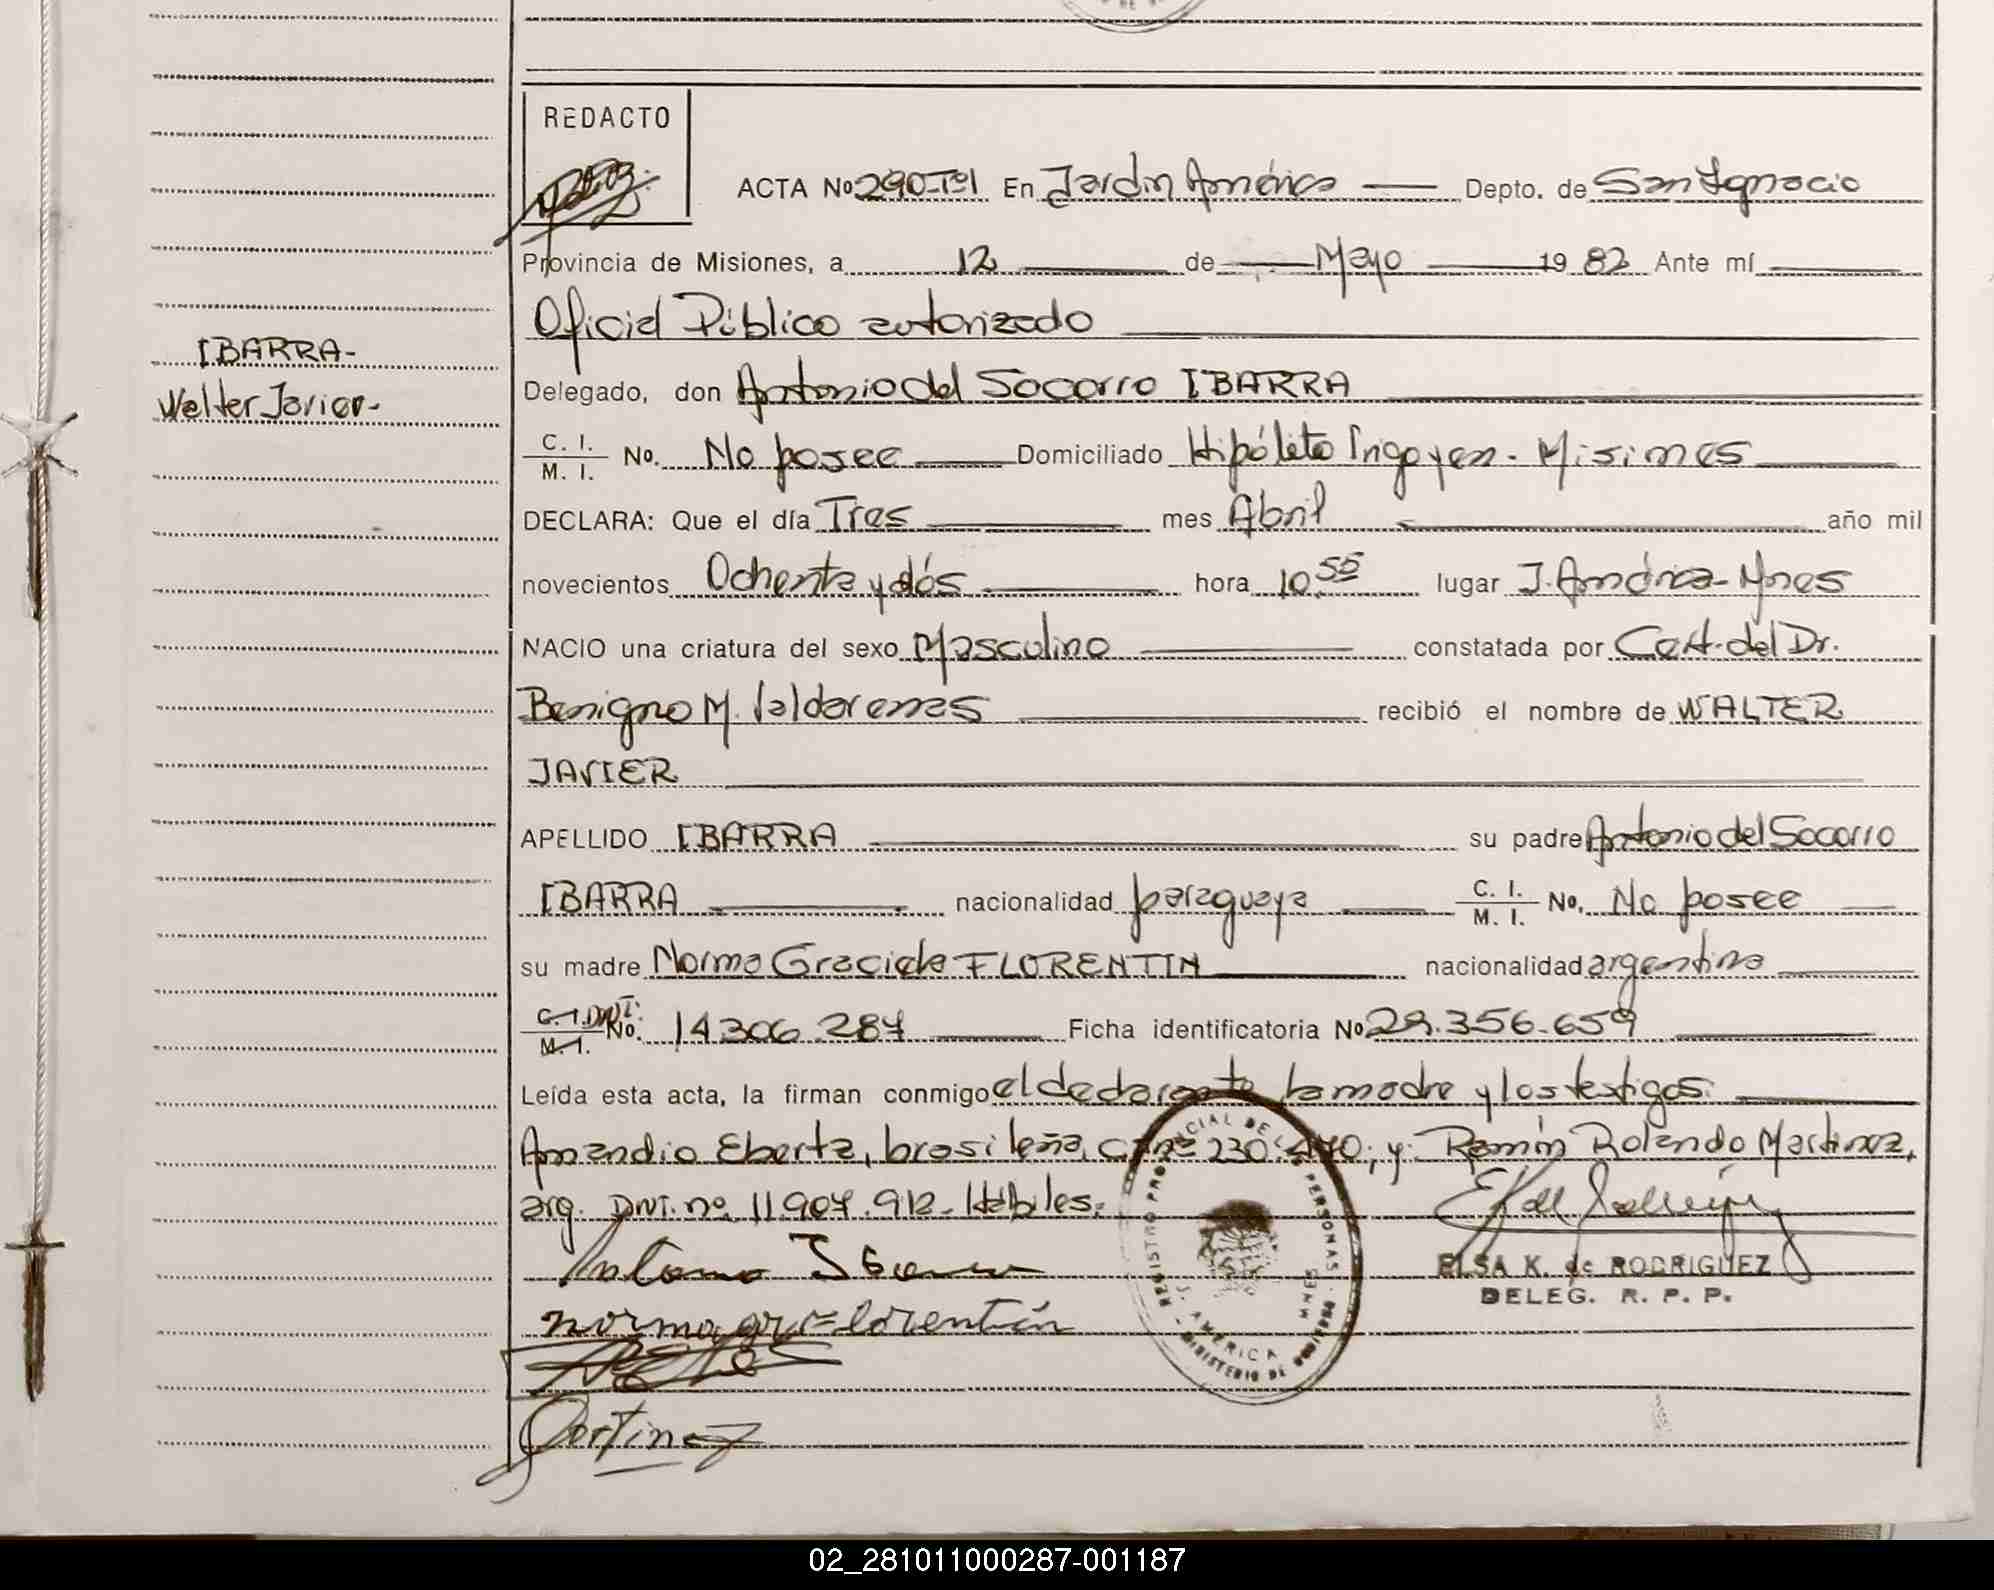 REDACTO
ACTA No 290-Tº1 En Jardín América Depto. de San Ignacio
Provincia de Misiones, a 12 de Mayo 19 82 Ante mí
Oficial Público autorizado
IBARRA-
Delegado, don Antonio del Socorro IBARRA
Walter Javier-
C. I. M. I. No. No posee Domiciliado Hipólito Irigoyen - Misiones
DECLARA: Que el día Tres mes Abril año mil
novecientos Ochenta y dós hora 10.55 lugar J. América - Mnes
NACIO una criatura del sexo Masculino constatada por Cert. del Dr.
Benigno M. Valdarenas recibió el nombre de WALTER
JAVIER
APELLIDO IBARRA su padre Antonio del Socorro
IBARRA nacionalidad paraguaya C. I. M. I. No. No posee
su madre Norma Graciela FLORENTIN nacionalidad argentina
C. I. M. I. DNI. No. 14.306.287 Ficha identificatoria No 29.356.659
Leída esta acta, la firman conmigo el declarante la madre y los testigos:
Amandio Eberte, brasileña, C.I. nº 230.470; y: Ramón Rolando Martinez,
arg. DNI. nº. 11.907.912. Hábiles.
Antonio Ibarra
ELSA K. de RODRIGUEZ
DELEG. R. P. P.
norma gr Florentín
Martinez
REGISTRO PROVINCIAL DE LAS PERSONAS
J. AMERICA MNES
MINISTERIO DE
02_281011000287-001187